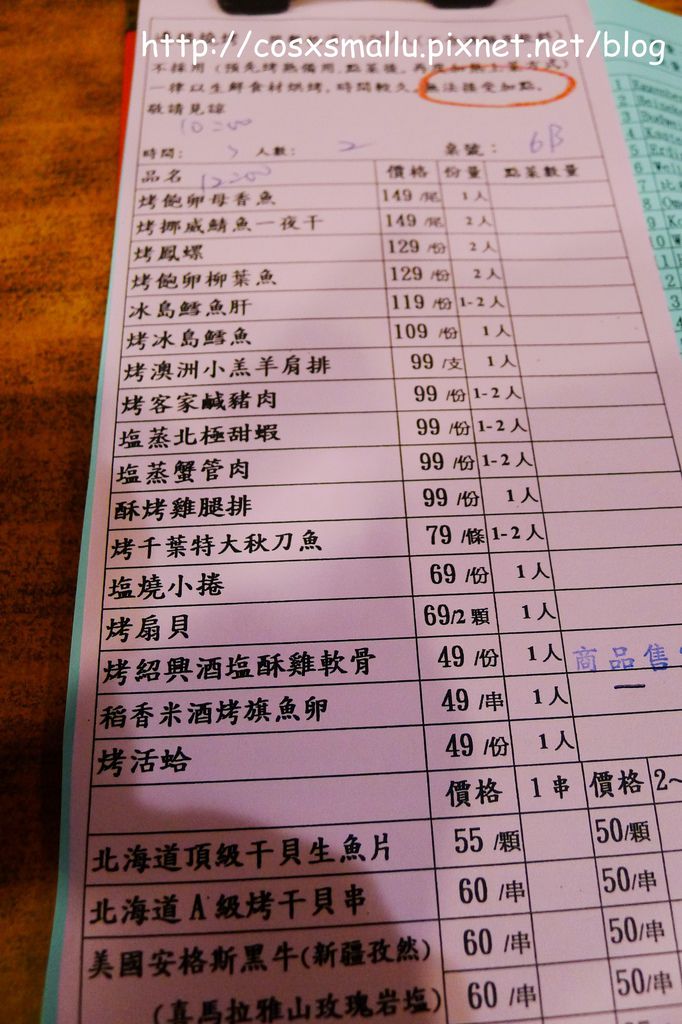 http://cosxsmallu.pixnet.net/blog
不採用(預先烤熟備用,點菜後,再度加熱上菜方式)
一律以生鮮食材烘烤,時間較久,無法接受加點。
敬請見諒
10:00
時間: 人數: 2 桌號: 6B
12:00
品名 價格 份量 點菜數量
烤飽卵母香魚 149/尾 1人
烤挪威鯖魚一夜干 149/尾 2人
烤鳳螺 129/份 2人
烤飽卵柳葉魚 129/份 2人
冰島鱈魚肝 119/份 1-2人
烤冰島鱈魚 109/份 1人
烤澳洲小羔羊肩排 99/支 1人
烤客家鹹豬肉 99/份 1-2人
塩蒸北極甜蝦 99/份 1-2人
塩蒸蟹管肉 99/份 1-2人
酥烤雞腿排 99/份 1人
烤千葉特大秋刀魚 79/條 1-2人
塩燒小捲 69/份 1人
烤扇貝 69/2顆 1人
烤紹興酒塩酥雞軟骨 49/份 1人 商品售
稻香米酒烤旗魚卵 49/串 1人
烤活蛤 49/份 1人
價格 1串 價格 2~
北海道頂級干貝生魚片 55/顆 50/顆
北海道A級烤干貝串 60/串 50/串
美國安格斯黑牛(新疆孜然) 60/串 50/串
(喜馬拉雅山玫瑰岩塩) 60/串 50/串